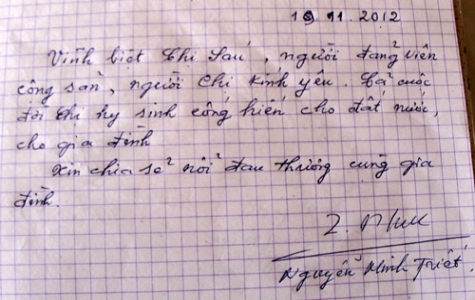 19.11.2012
Vĩnh biệt Chị Sáu, người đảng viên
cộng sản, người Chị kính yêu. Cả cuộc
đời Chị hy sinh cống hiến cho đất nước,
cho gia đình
Xin chia sẻ nỗi đau thương cùng gia
đình.
Nguyễn Minh Triết